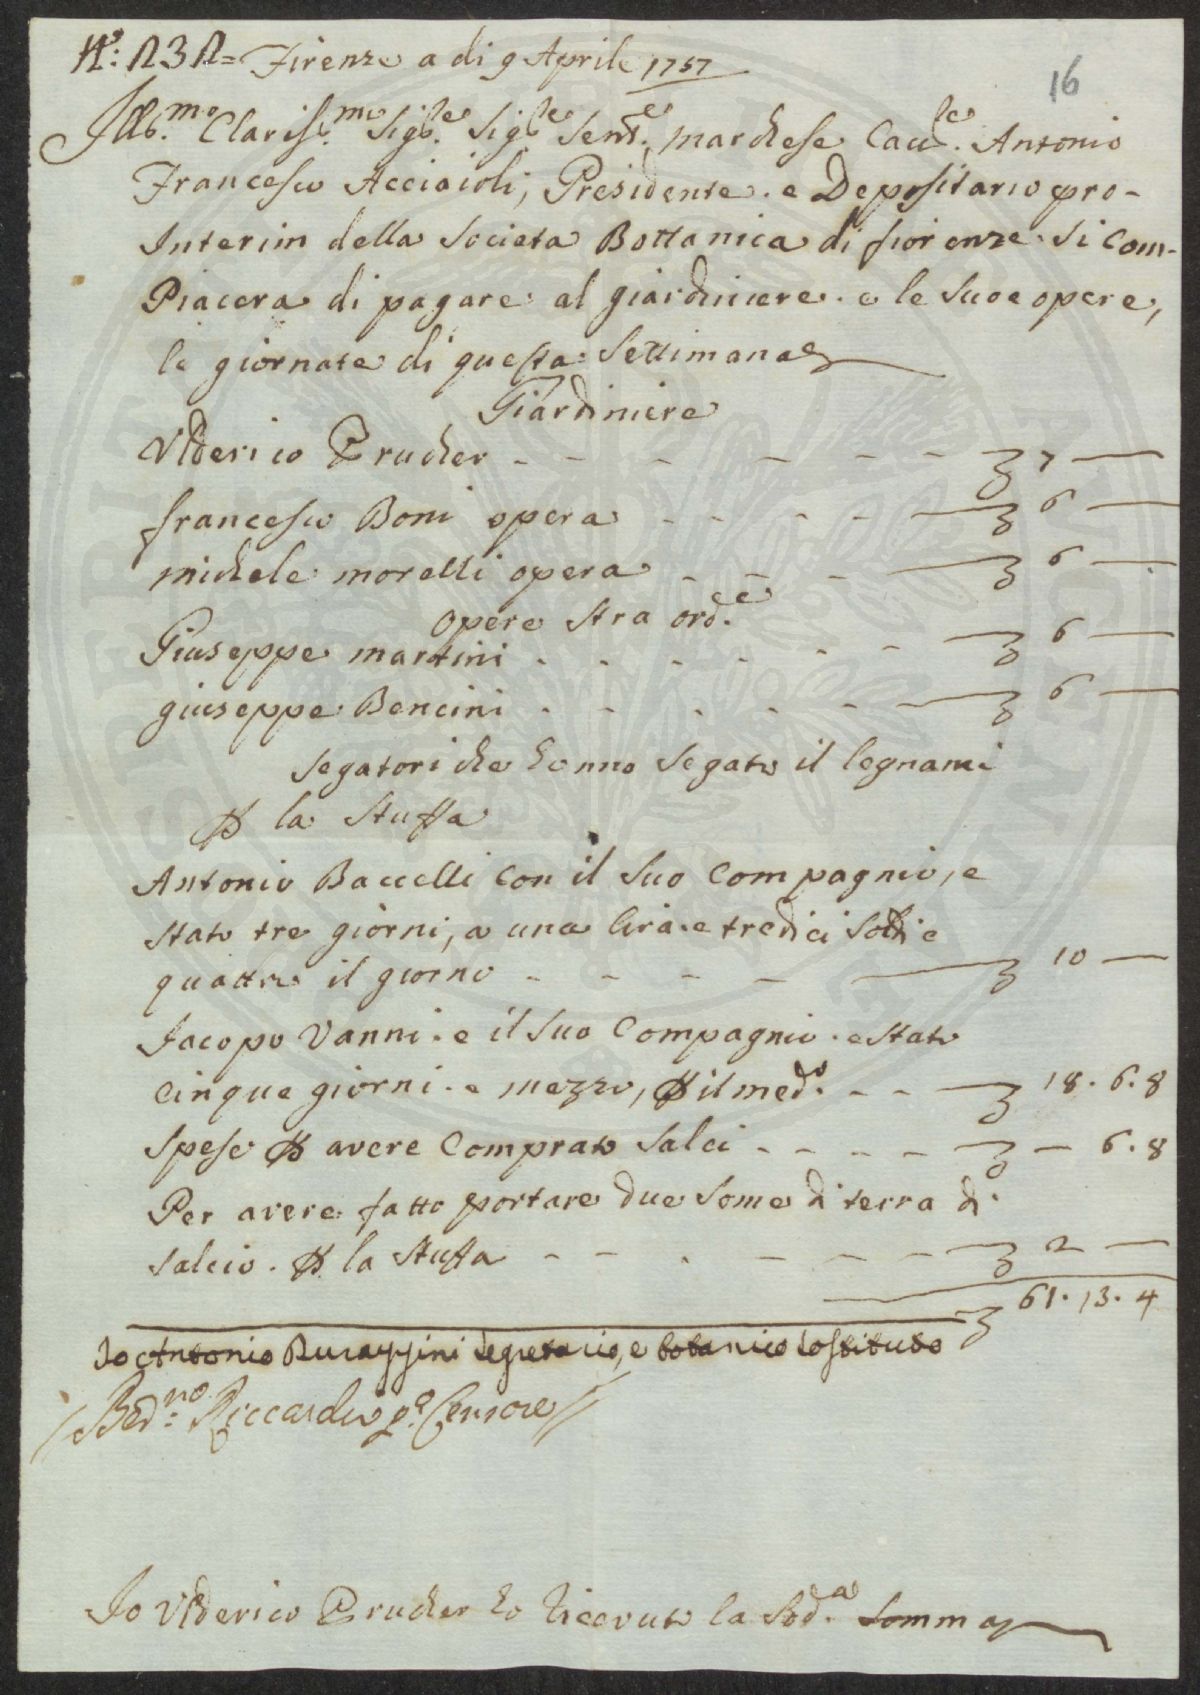 N.o: 232= Firenze a di 9 Aprile 1757
16
Illb.mo Clarisb.mo Sigb.e Sigb.e Sent.e marchese Cau.le Antonio
Francesco Acciaioli, Presidente. e Depositario pro-
Interim della Societa Bottanica di fiorenze. Si Com-
Piacera di pagare al giardiniere. e le Suoe opere,
le giornate di questa Settimana
Giardiniere
Vlderico Prucher - - - - - - 7 —
francesco Boni opera - - - - 6 —
michele morelli opera - - - 6 —
Opere Stra ord.e
Giuseppe martini - - - - - - 6 —
giuseppe Bencini - - - - - 6 —
Segatori che hanno Segato il legnami
P la Stuffa
Antonio Baccelli Con il Suo Compagnio, e
Stato tre giorni, a una lira. e tredici Soldi e
quattro il giorno - - - - 10 —
Jacopo Vanni. e il Suo Compagnio. e Stato
Cinque giorni. e mezzo, P il med.o - - 18. 6. 8
Spese P avere Comprato Salci - - - - — 6. 8
Per avere fatto portare due Some di terra di
Salcio. P la Stuffa - - - - - - 2 —
61. 13. 4
Io Antonio Durazzini Segretario, e botanico Sostituto
Bed.no Riccardi p.o Censore
Io Vlderico Prucher ho Riceuuto la Sod.a Somma